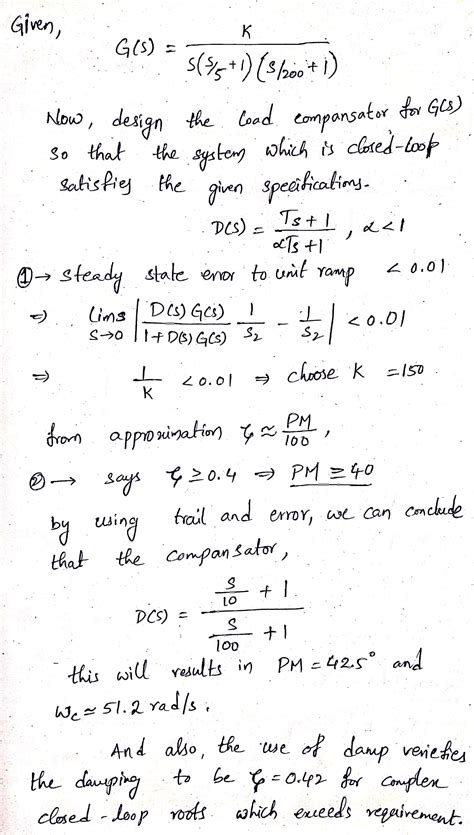 Given,
G(s) = K / s(s/5 + 1) (s/200 + 1)
Now, design the load compansator for G(s)
so that the system which is closed-loop
satisfies the given specifications.
D(s) = Ts + 1 / αTs + 1 , α < 1
① → steady state error to unit ramp < 0.01
⇒ lim s s→0 | D(s) G(s) / 1 + D(s) G(s) 1/s2 - 1/s2 | < 0.01
⇒ 1/K < 0.01 ⇒ choose K = 150
from approximation ζ ≈ PM/100 ,
② → says ζ ≥ 0.4 ⇒ PM ≥ 40
by using trail and error, we can conclude
that the compansator,
D(s) = s/10 + 1 / s/100 + 1
this will results in PM = 42.5° and
Wc ≃ 51.2 rad/s.
And also, the use of damp veriefies
the damping to be ζ = 0.42 for complex
closed-loop roots which exceeds requirement.